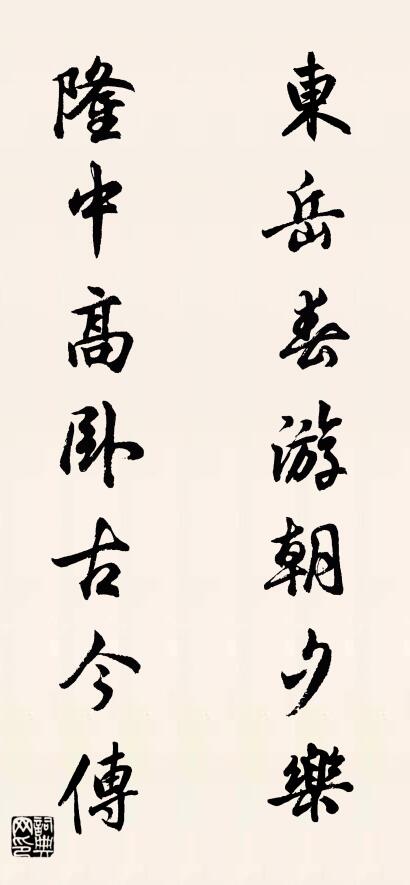 東岳春游朝夕樂
隆中高臥古今傳
詞典网印